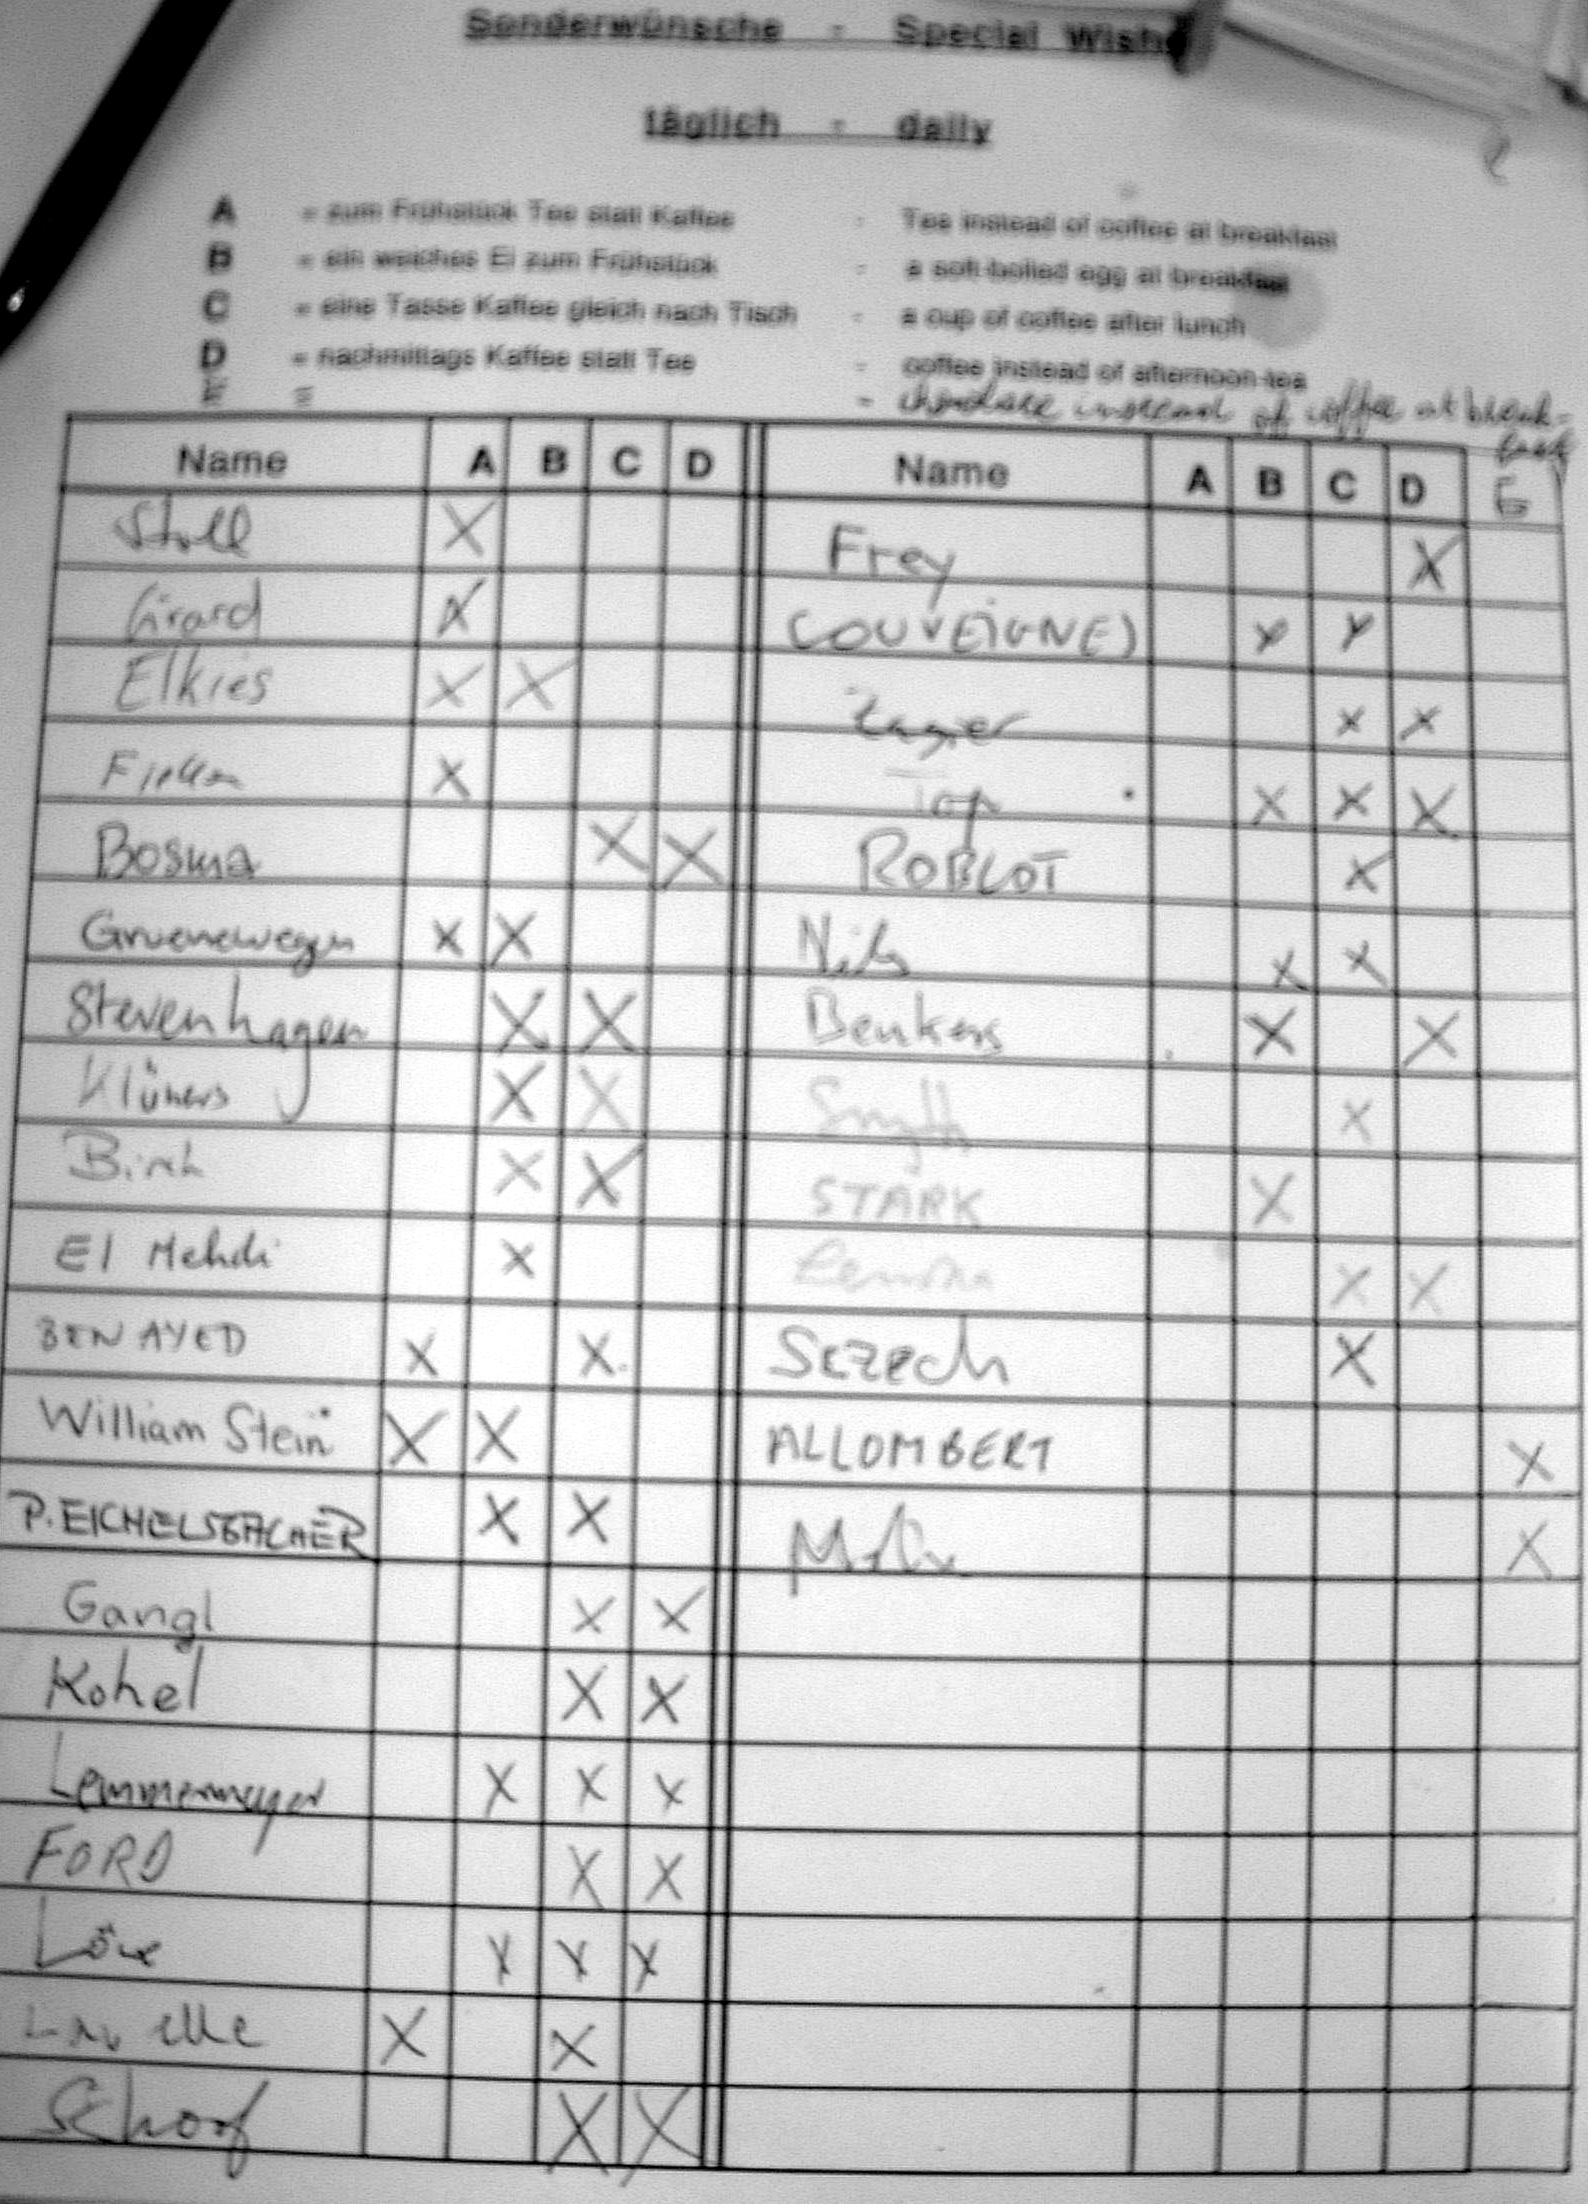 Sonderwünsche - Special Wish
täglich - daily
A = zum Frühstück Tee statt Kaffee - Tea instead of coffee at breakfast
B = ein weiches Ei zum Frühstück - a soft-boiled egg at breakfast
C = eine Tasse Kaffee gleich nach Tisch - a cup of coffee after lunch
D = nachmittags Kaffee statt Tee - coffee instead of afternoon-tea
E = - chocolate instead of coffee at break-
fast
Name A B C D Name A B C D E
Stoll X Frey X
Girard X COUVEIGNES X X
Elkies X X Zagier X X
X Top X X X
Bosma X X ROBLOT X
Gruenewegen X X Nils X X
Stevenhagen X X Beukers X X
Klüners X X Smyth X
Birch X X STARK X
El Mehdi X X X
BENAYED X X Sczech X
William Stein X X ALLOMBERT X
P. EICHELSBACHER X X X
Gangl X X
Kohel X X
Lemmermeyer X X X
FORD X X
Löw X X X
X X
Schoof X X